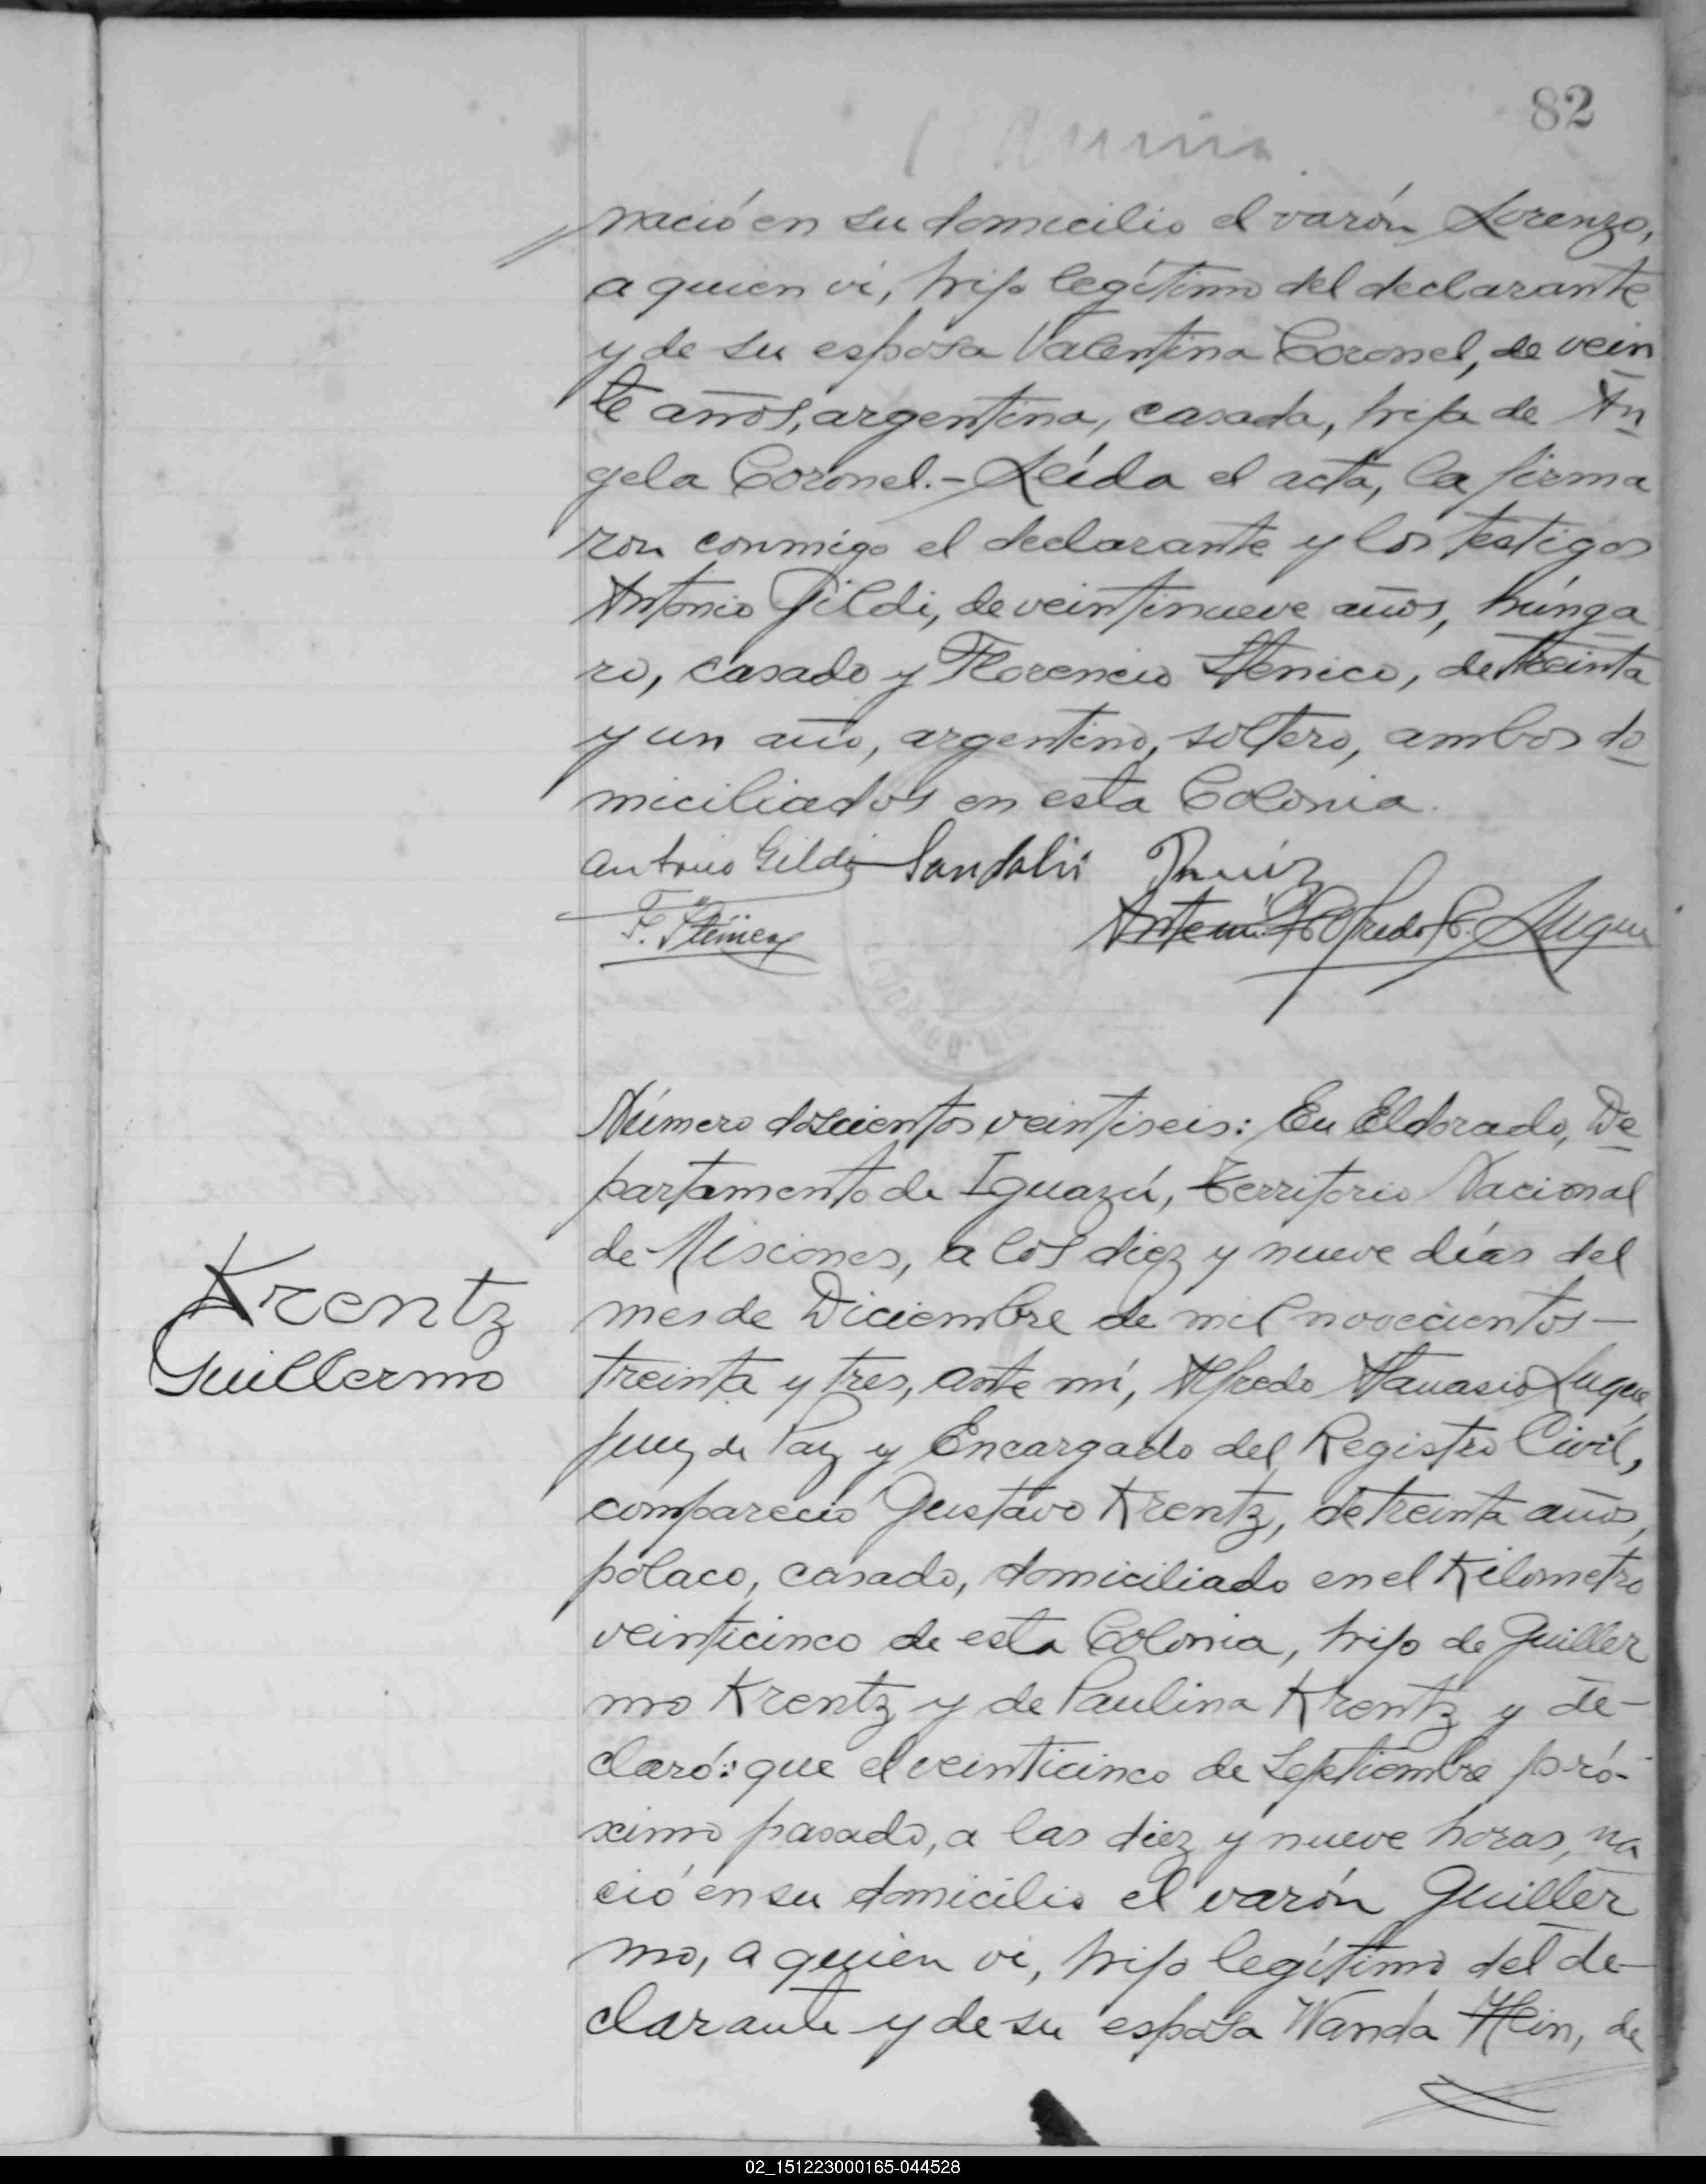 82
nació en su domicilio el varón Lorenzo,
a quien vi, hijo legítimo del declarante
y de su esposa Valentina Coronel, de vein
te años, argentina, casada, hija de An
gela Coronel.- Leída el acta, la firma
ron conmigo el declarante y los testigos
Antonio Gildi, de veintinueve años, húnga
ro, casado y Florencio Stenico, de treinta
y un año, argentino, soltero, ambos do
miciliados en esta Colonia.
Antonio Gildi Sandalio
F. Alfredo A. Luque
Número doscientos veintiseis: En Eldorado, De
partamento de Iguazú, Territorio Nacional
de Misiones, a los diez y nueve días del
mes de Diciembre de mil novecientos—
treinta y tres, ante mí, Alfredo Atanasio Luque,
Juez de Paz y Encargado del Registro Civil,
compareció Gustavo Krentz, de treinta años,
polaco, casado, domiciliado en el Kilometro
veinticinco de esta Colonia, hijo de Guiller
mo Krentz y de Paulina Krentz y de-
claró: que el veinticinco de Septiembre pró-
ximo pasado, a las diez y nueve horas, na
ció en su domicilio el varón Guiller
mo, a quien vi, hijo legítimo del de-
clarante y de su esposa Wanda Hein, de
Krentz
Guillermo
02_151223000165-044528